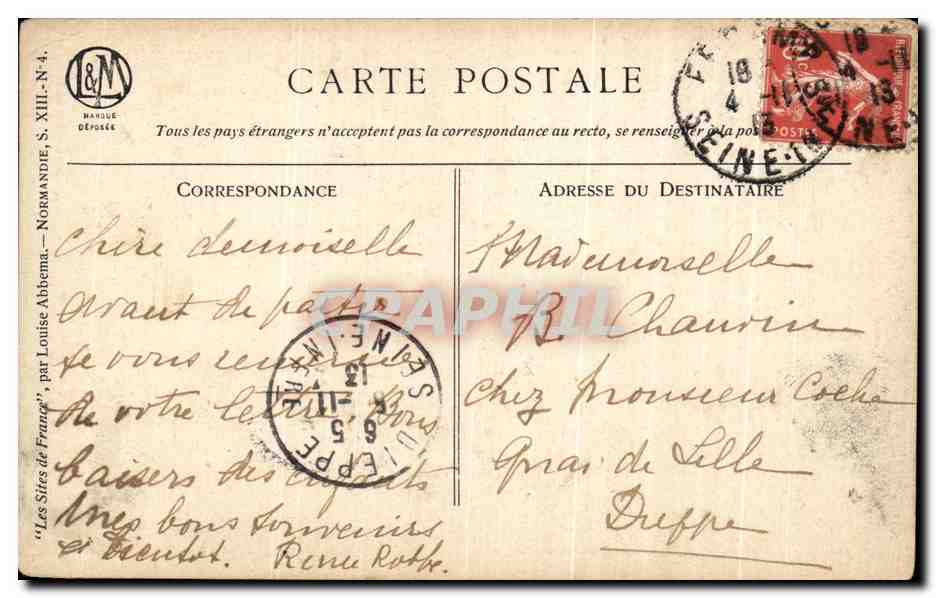 L&M
MARQUE
DÉPOSÉE
CARTE POSTALE
Tous les pays étrangers n'acceptent pas la correspondance au recto, se renseigner à la pos
CORRESPONDANCE
chère demoiselle
avant de partir
je vous remercie
de votre lettre Bons
baisers des enfants
Mes bons souvenirs
et bientot. Renée
ADRESSE DU DESTINATAIRE
Mademoiselle
B. Chauvin
chez Monsieur Coche
Quai de Lille
Dieppe
"Les Sites de France", par Louise Abbema.— NORMANDIE, S. XIII.- N° 4.
18
4 -11
13
SEINE-IN
18
13
SEINE
POSTES
DIEPPE
SEINE-INFRE
6 5
5 -11
13
CPAPHIL